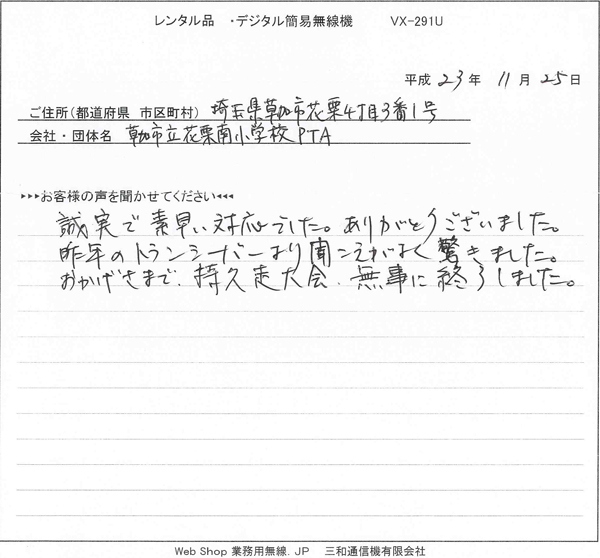 レンタル品 ・デジタル簡易無線機 VX-291U
平成 23 年 11 月 25 日
ご住所(都道府県 市区町村) 埼玉県草加市花栗4丁目3番1号
会社・団体名 草加市立花栗南小学校PTA
▸▸▸お客様の声を聞かせてください◂◂◂
誠実で素早い対応でした。ありがとうございました。
昨年のトランシーバーより聞こえがよく驚きました。
おかげさまで、持久走大会、無事に終了しました。
Web Shop 業務用無線.JP 三和通信機有限会社